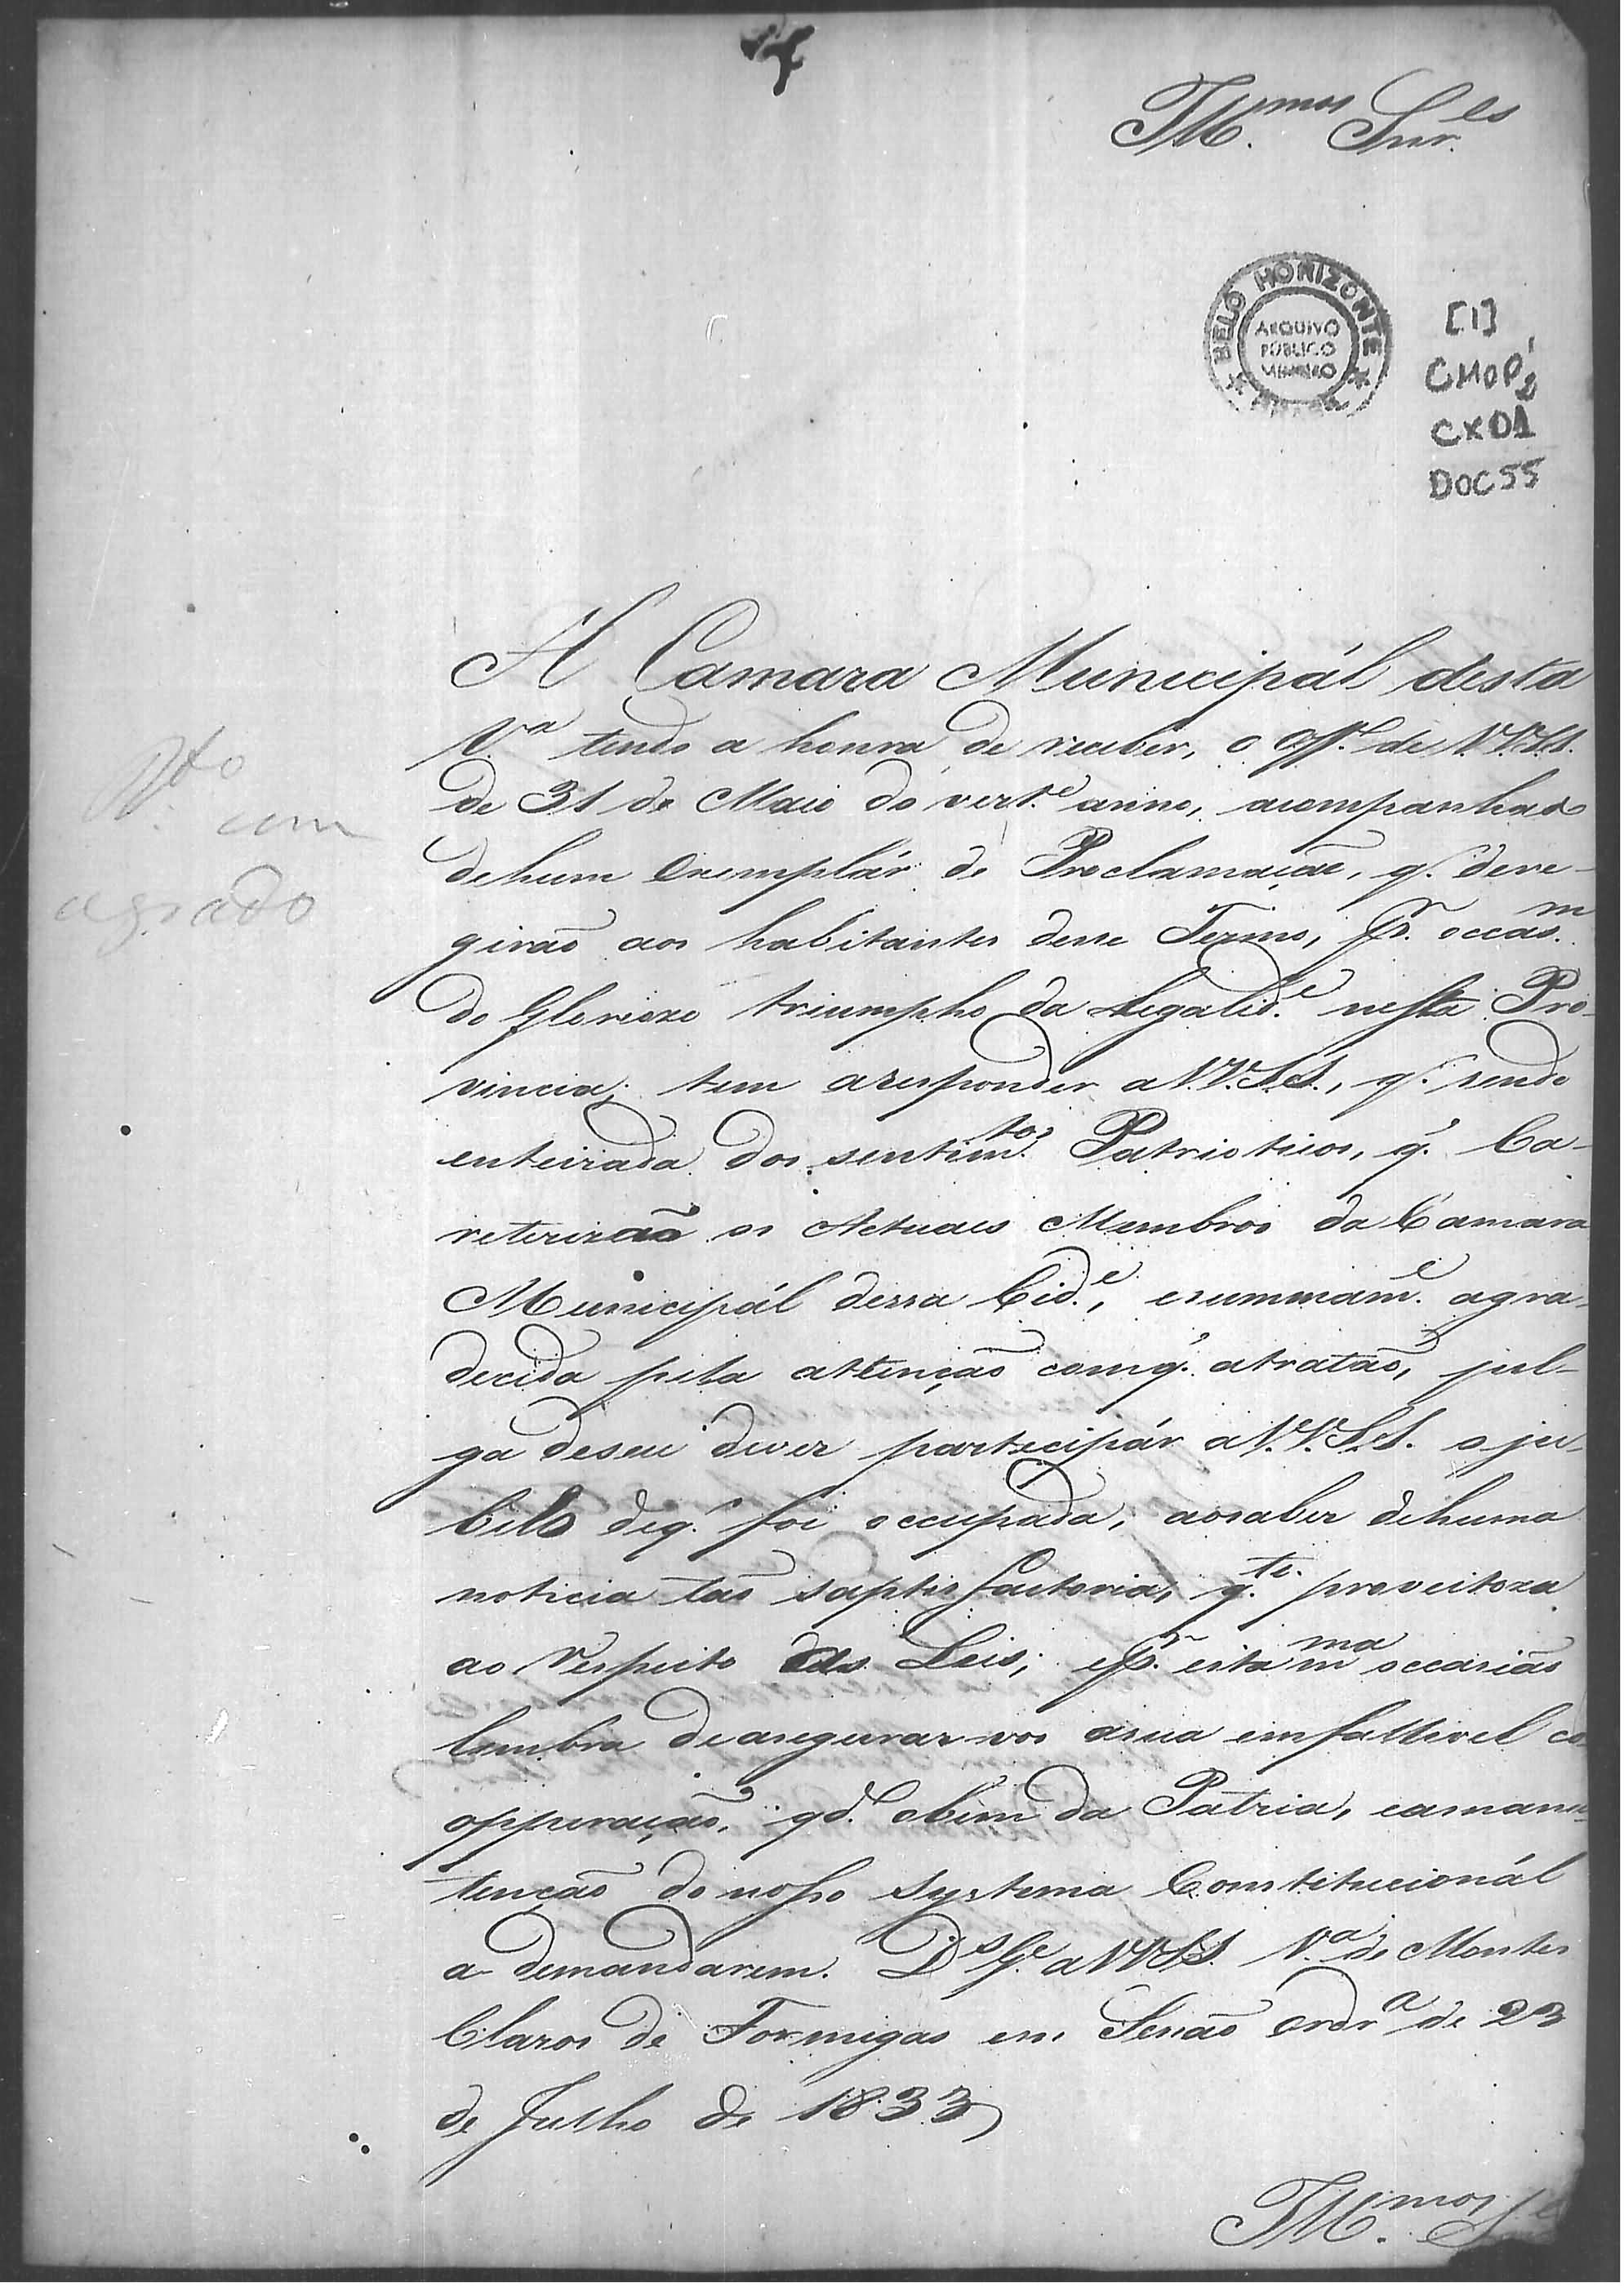 Ill.mos Snr.es
BELO HORIZONTE
ARQUIVO
PÚBLICO
MINEIRO
[1]
CMOP2
CX01
DOC55
A Camara Municipál desta
V.a tendo a honra de receber, o off.º de V.V.S.S.
de 31 de Maio do vert.e anno, acompanhado
dehum Exemplár de Proclamação, q. dere-
girão aos habitantes desse Termo, pr. occás.m
do Gloriozo triumpho da Legalid.e nesta Pro-
vincia; tem aresponder a V.V.S.S., q. sendo
enteirada dos sentim.tos Patrioticos, q. Ca-
reterizão os Actuaes Membros da Camara
Municipál dessa Cid.e, esummam.e agra-
decida pela attenção comq. atratão, jul-
ga deseu dever partecipár a V.V.S.S. o ju-
bilo deq. foi occupada, aosaber dehuma
noticia tão saptisfactoria, q.to proveitoza
ao Respeito das Leis; epr. esta m.ma occasião
lembra deasegurar-vos asua emfallivel co
opperação, qd.o obem da Patria, eamanu-
tenção do nosso Systema Constitucionál
a demandarem. D.s G.e a VVSS. V.a de Montes
Claros de Formigas em Sesão Ordr.a de 23
de Julho de 1833
Ill.mos
R.do com
agrado